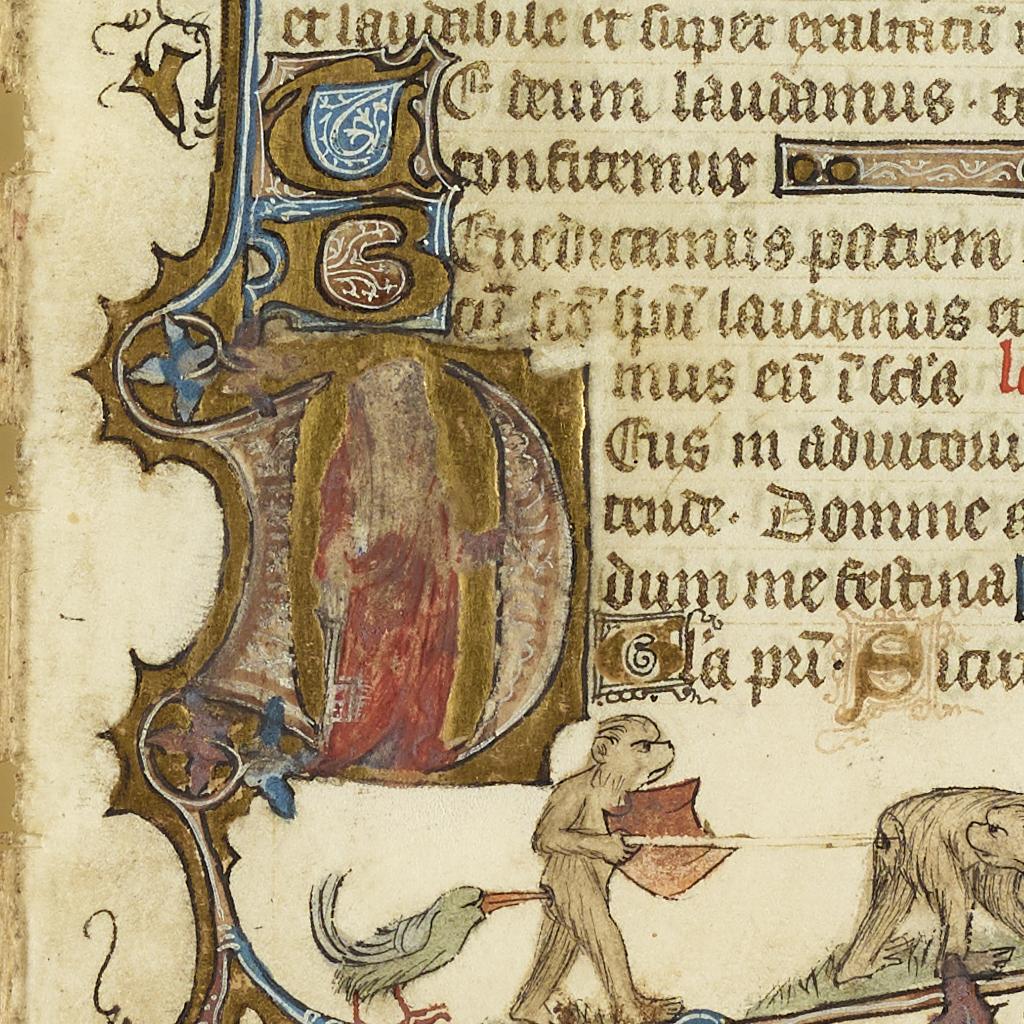 et laudabile et super exaltatū
TE deum laudamus · te
confitemur
Benedicamus patrem
cū sc̄o sp̄u laudemus et
mus eū ī scl̄a
Deus in adiutoriu
tende · Domine
dum me festina
Gl̄a pr̄i · Sicut